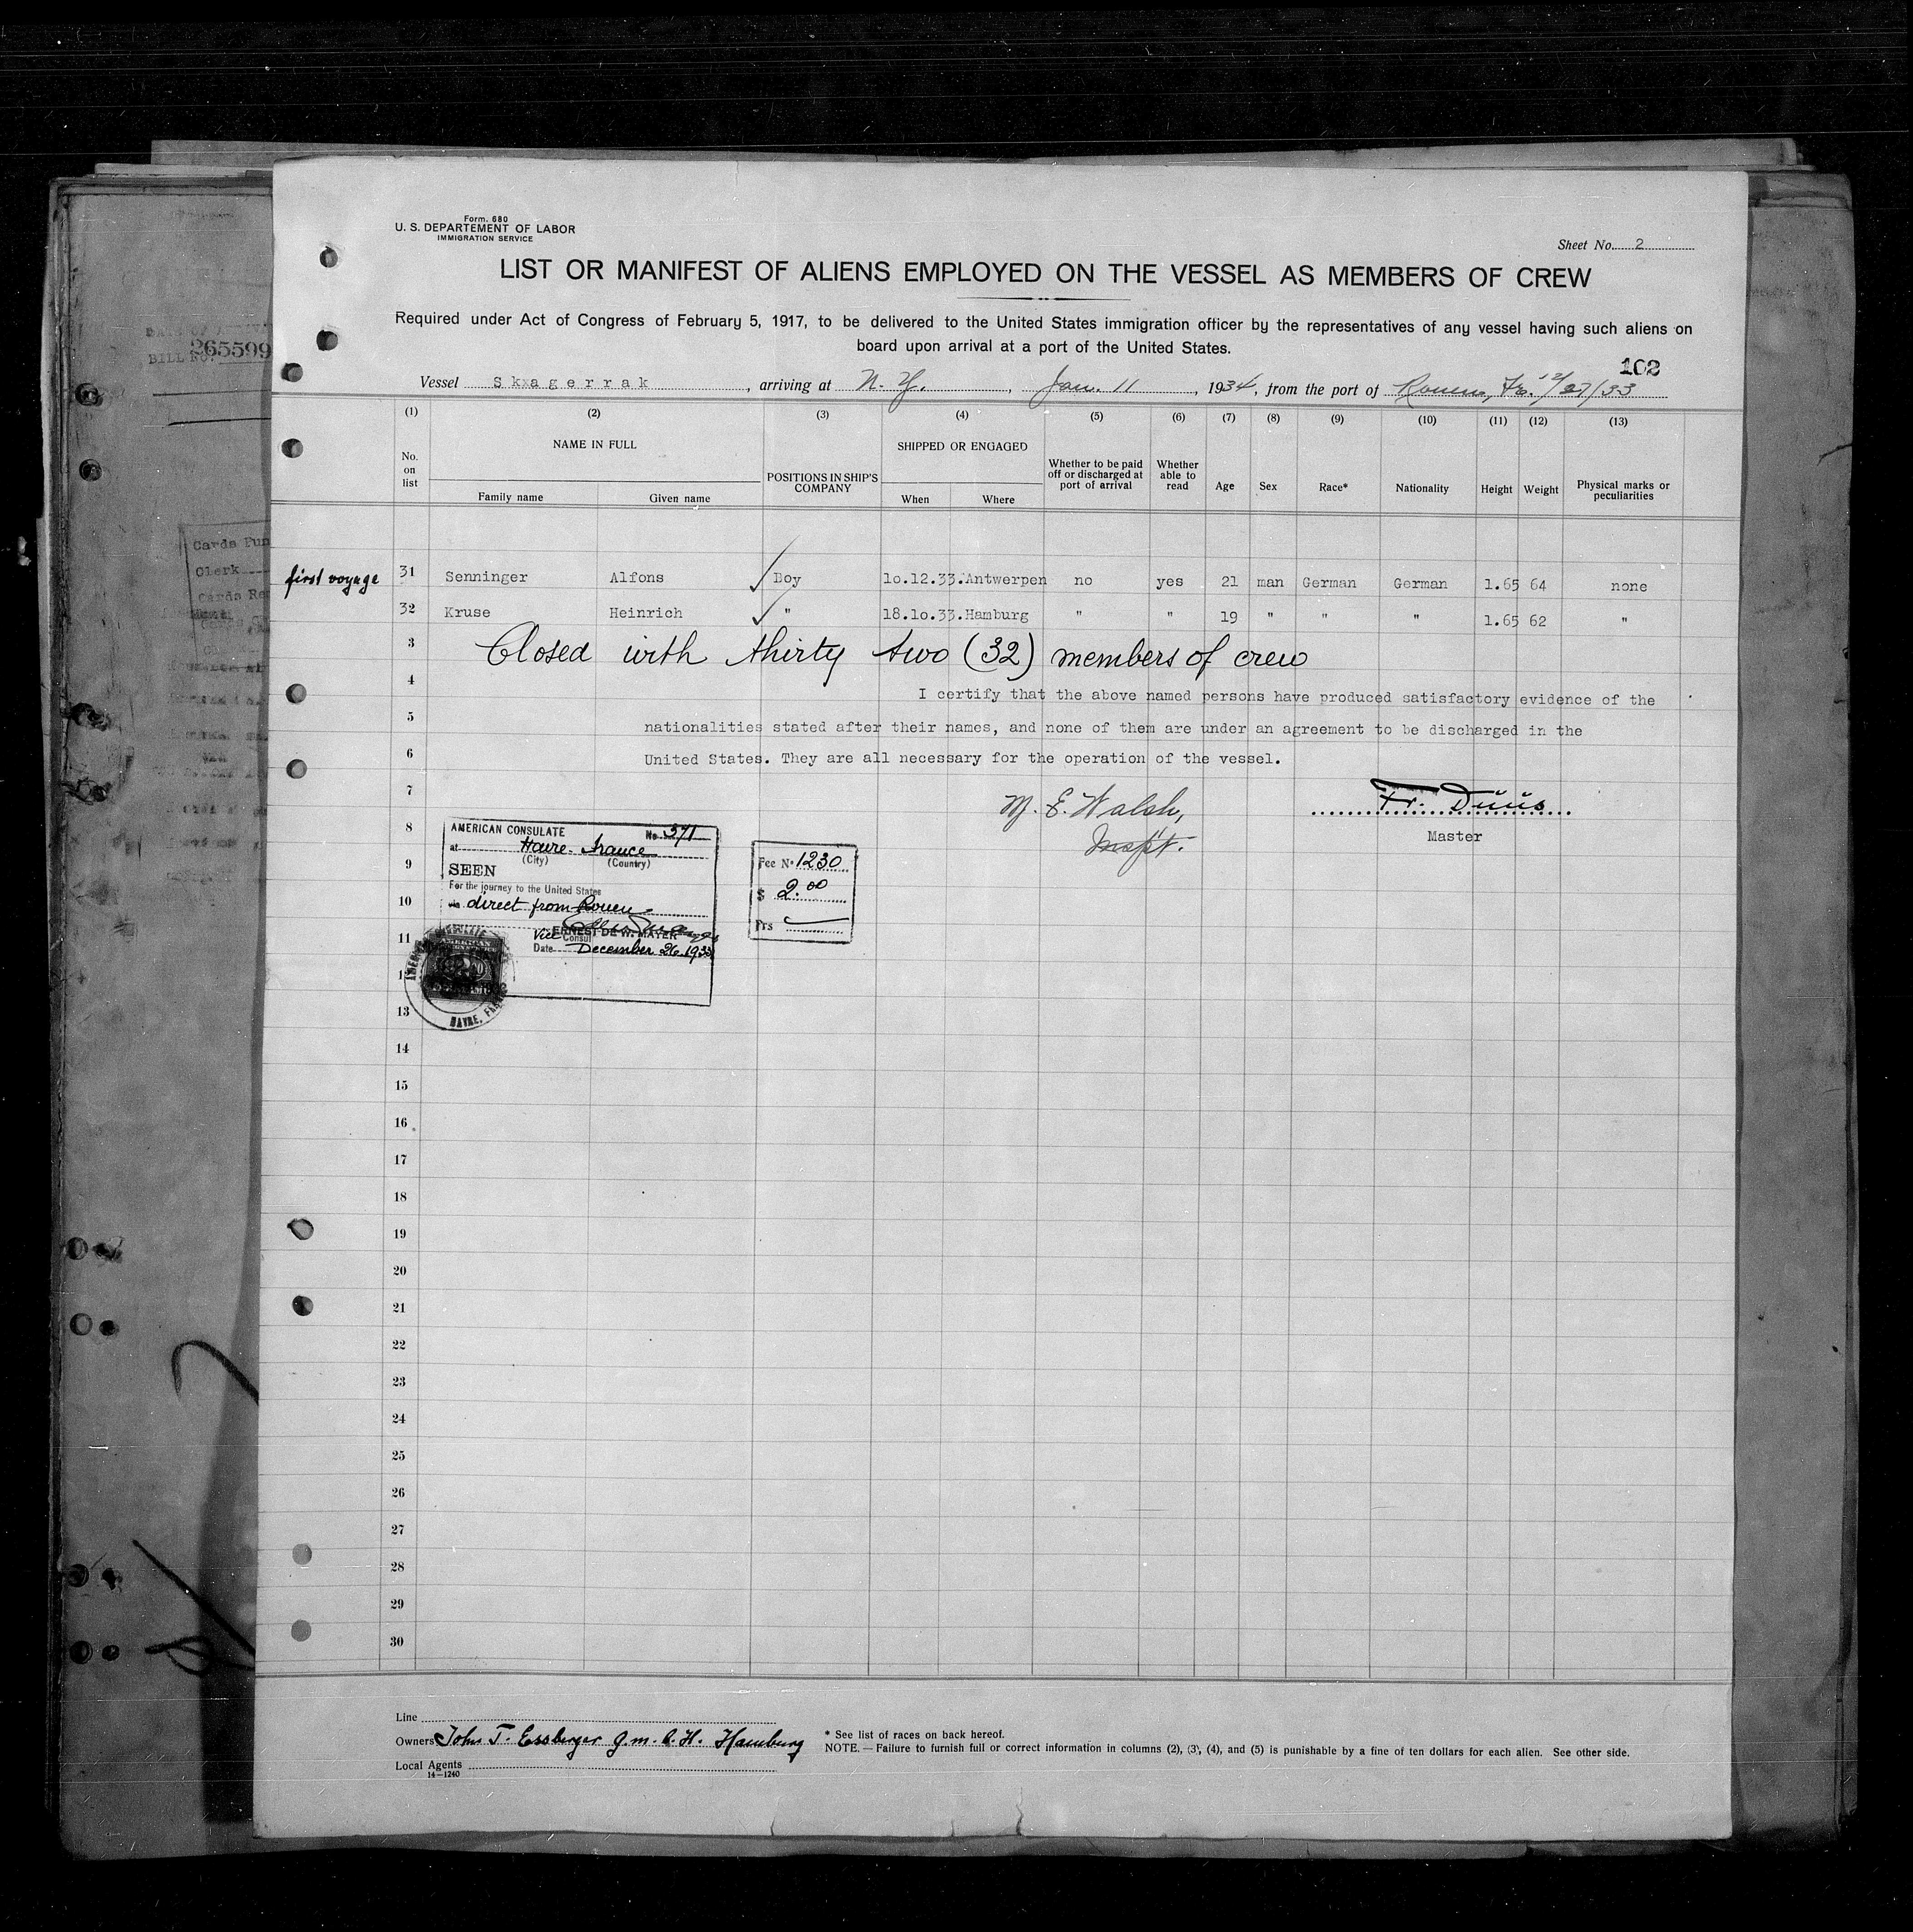 Form. 680
U. S. DEPARTEMENT OF LABOR
IMMIGRATION SERVICE
Sheet No. 2
LIST OR MANIFEST OF ALIENS EMPLOYED ON THE VESSEL AS MEMBERS OF CREW
Required under Act of Congress of February 5, 1917, to be delivered to the United States immigration officer by the representatives of any vessel having such aliens on
board upon arrival at a port of the United States.
102
Vessel Skxagerrak, arriving at N. Y., Jan. 11, 1934, from the port of Rouen, Fr. 12/27/33
(1) (2) (3) (4) (5) (6) (7) (8) (9) (10) (11) (12) (13)
No. on list NAME IN FULL Family name Given name POSITIONS IN SHIP'S COMPANY SHIPPED OR ENGAGED When Where Whether to be paid off or discharged at port of arrival Whether able to read Age Sex Race* Nationality Height Weight Physical marks or peculiarities
first voyage 31 Senninger Alfons Boy 1o.12.33.Antwerpen no yes 21 man German German 1.65 64 none
32 Kruse Heinrich " 18.1o.33.Hamburg " " 19 " " " 1.65 62 "
3 Closed with thirty two (32) members of crew
4 I certify that the above named persons have produced satisfactory evidence of the
5 nationalities stated after their names, and none of them are under an agreement to be discharged in the
6 United States. They are all necessary for the operation of the vessel.
7 M. E. Walsh, Fr. Düüs
Inspt. Master
8
9
10
11
1
13
14
15
16
17
18
19
20
21
22
23
24
25
26
27
28
29
30
AMERICAN CONSULATE No. 371
at Havre France
(City) (Country)
SEEN
For the journey to the United States
via direct from Rouen
ERNEST DE W. MAYER
Vice Consul
Date December 26. 1933
HAVRE, FRANCE
Fee No 1230
$ 2.00
Frs
Line
Owners John T. Essberger G.m.b.H. Hamburg
Local Agents
14—1240
* See list of races on back hereof.
NOTE.—Failure to furnish full or correct information in columns (2), (3), (4), and (5) is punishable by a fine of ten dollars for each alien. See other side.
BILL No. 265599
Cards Pun
Clerk
Cards Re